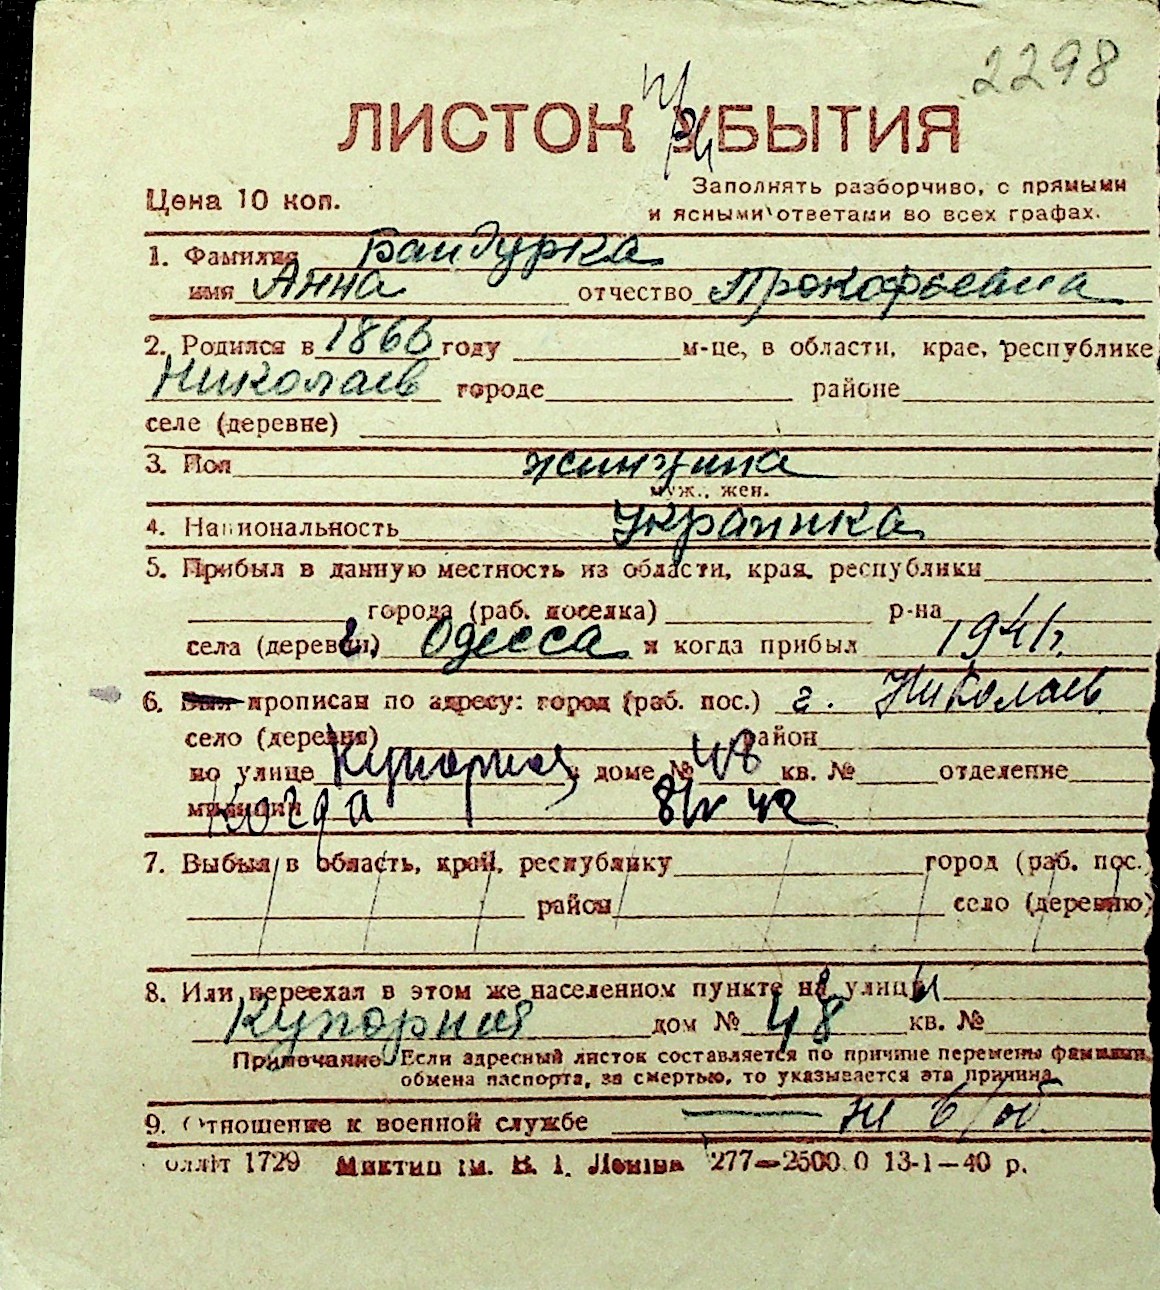 2298
ЛИСТОК УБЫТИЯ
при
Цена 10 коп.
Заполнять разборчиво, с прямыми
и ясными ответами во всех графах.
1. Фамилия Бандурка
имя Анна отчество Прокофьевна
2. Родился в 1866 году м-це, в области, крае, республике
Николаев городе районе
селе (деревне)
3. Пол женщина
муж., жен.
4. Национальность Украинка
5. Прибыл в данную местность из области, края, республики
города (раб. поселка) р-на
села (деревни) г. Одесса и когда прибыл 1941 г.
6. Был прописан по адресу: город (раб. пос.) г. Николаев
село (деревня) район
по улице Купорная в доме № 48 кв. № отделение
милиции Когда 8/IV 42
7. Выбыл в область, край, республику город (раб. пос.)
район село (деревню)
8. Или переехал в этом же населенном пункте на улицу
Купорная дом № 48 кв. №
Примечание. Если адресный листок составляется по причине перемены фамилии,
обмена паспорта, за смертью, то указывается эта причина
9. Отношение к военной службе — н в/об
1729 Миктип ім. В. І. Леніна 277—2500.0 13-1—40 р.